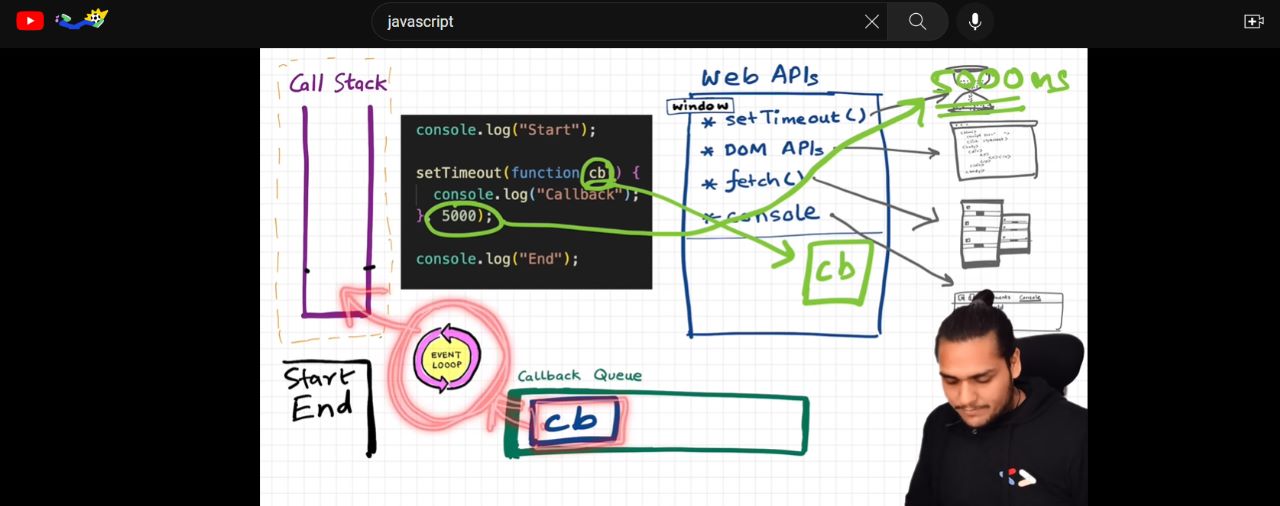 javascript
Call Stack
console.log("Start");
setTimeout(function cb() {
console.log("Callback");
}, 5000);
console.log("End");
Web APIs
window
* setTimeout()
* DOM APIs
* fetch()
* console
cb
5000 ms
Console
EVENT
LOOOP
Start
End
Callback Queue
cb